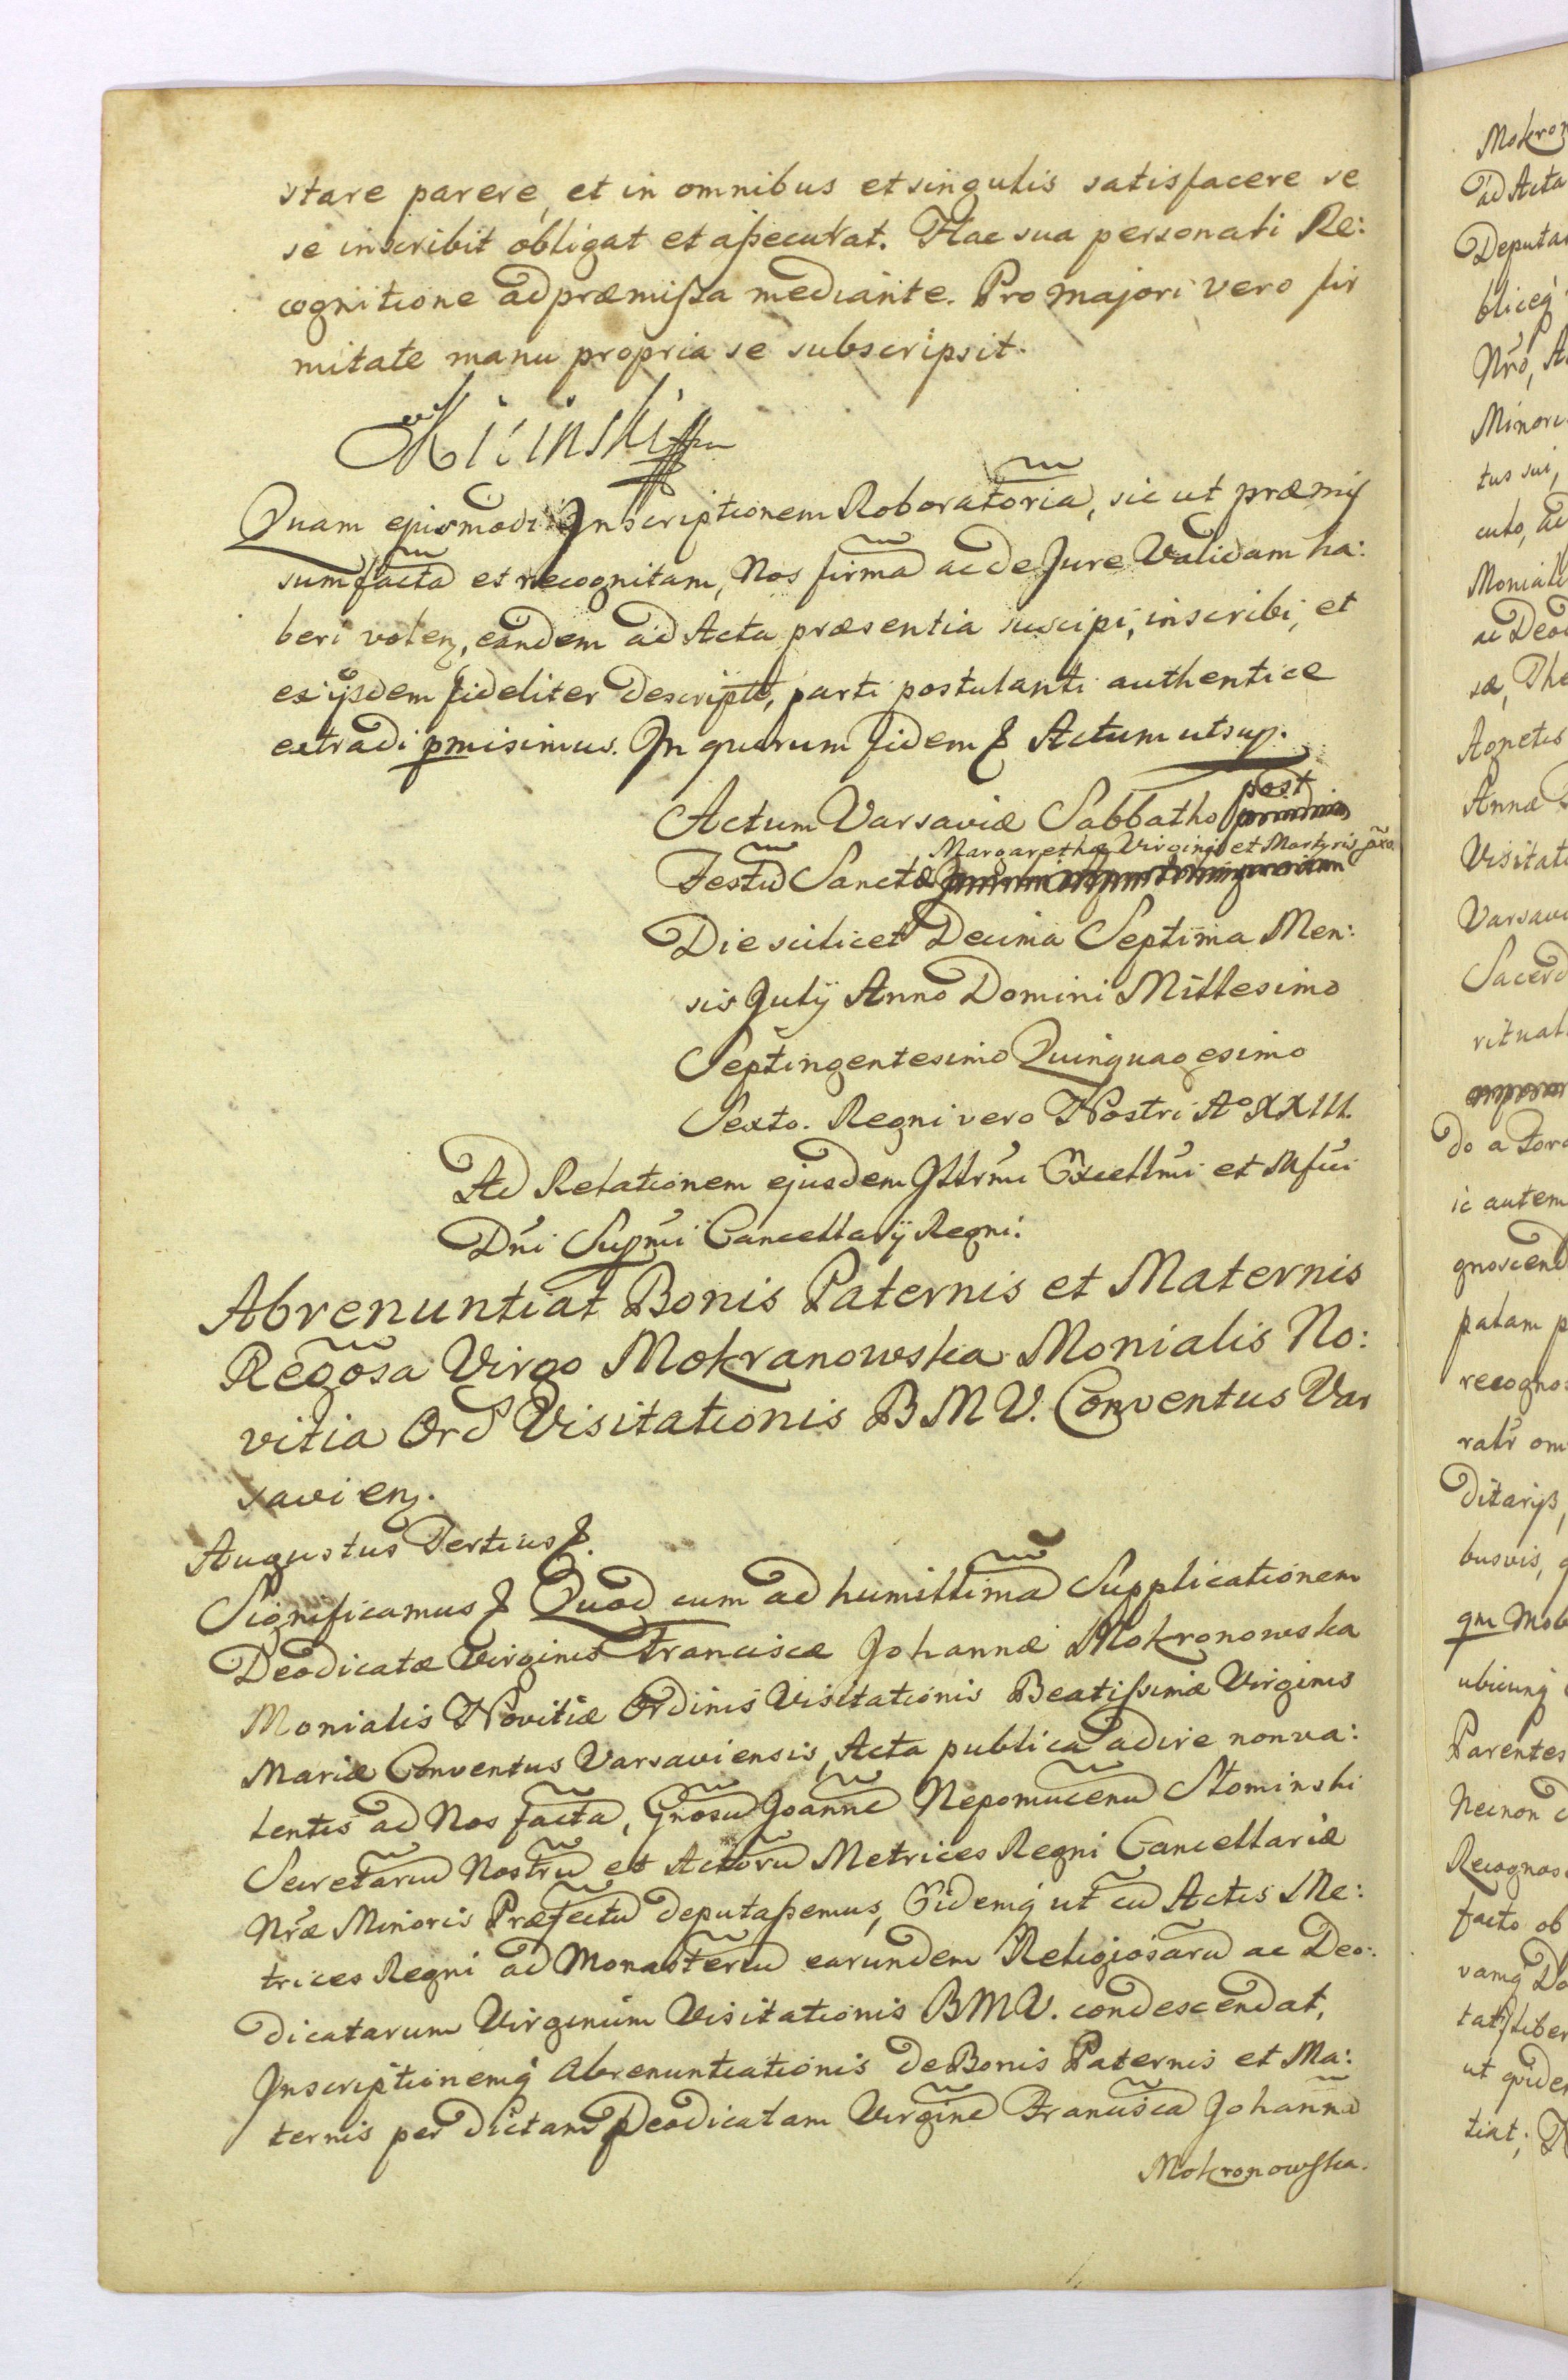 stare parere, et in omnibus et singulis satisfacere se
se inscribit obligat et aßecurat. Hac sua personali Re:
cognitione ad præmißa mediante. Pro majori vero fir
mitate manu propria se subscripsit.
Kicinski mp
Quam ejusmodi Inscriptionem Roboratoria͠, sic ut præmis
sum facta͠ et recognitam, Nos firma͠ ac de Jure Validam ha:
beri volenz, eandem ad Acta præsentia suscipi, inscribi, et
ex ijsdem fideliter descripta͠, parti postulanti authentice
extradi pmisimus. In quorum fidem & Actum ut sup.
Actum Varsaviæ Sabbatho post
Festu͠ Sanctæ Margarethæ Virginis et Martyris pxo͠
Die scilicet Decima Septima Men:
sis Julij Anno Domini Millesimo
Septingentesimo Quinquagesimo
Sexto. Regni vero Nostri Aº XXIII.
Ad Relationem ejusdem Illrm̃i Excellm̃i et Mfci
Dñi Suprm̃i Cancellarij Regni:
Abrenuntiat Bonis Paternis et Maternis
Rego͠sa Virgo Mokranowska Monialis No:
vitia Ord Visitationis B M V. Conventus Var
savienz.
Augustus Tertius &.
Significamus & Quod cum ad humillima͠ Supplicationem
Deodicatæ Virginis Franciscæ Johannæ Mokronowska
Monialis Novitiæ Ordinis Visitationis Beatißimæ Virginis
Mariæ Conventus Varsaviensis, Acta publica adire non va:
lentis ad Nos facta͠, Gnosu͠ Joanne͠ Nepomucenu͠ Słominski
Secretariu͠ Nostru͠ et Actoru͠ Metrices Regni Cancellariæ
Nr̃æ Minoris Præfectu͠ deputaßemus, Eidemq́ ut cu͠ Actis Me:
trices Regni ad Monasteriu͠ earundem Religiosaru͠ ac Deo:
dicatarum Virginum Visitationis B M V. condescendat,
Inscriptionemq́ Abrenuntiationis de Bonis Paternis et Ma:
ternis per dictam Deodicatam Virgine͠ Francisca͠ Johanna͠
Mokronowska.
Mokron
ad Acta
Deputa
bliceq́
Nr̃o, A
Minori
tus sui,
Moniali
ac Deo
sæ, The
Agnetis
Annæ
Visitati
Varsavi
Sacerd
ritual
do a Foro
ic autem
gnoscend
palam p
recognos
ditarijs,
busvis,
qm Mob
ubicunq́
Parentes
Necnon
Recognos
facto ob
vamq́ Do
ut quide
tiat;